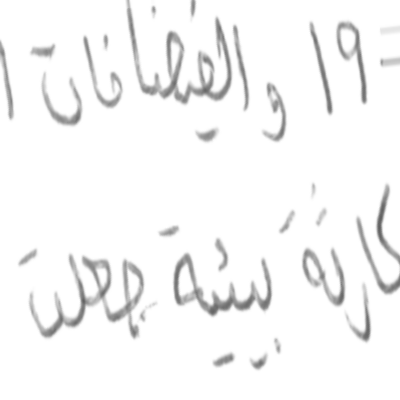 ١٩ والفيضانات
كارثة بيئية جعلت